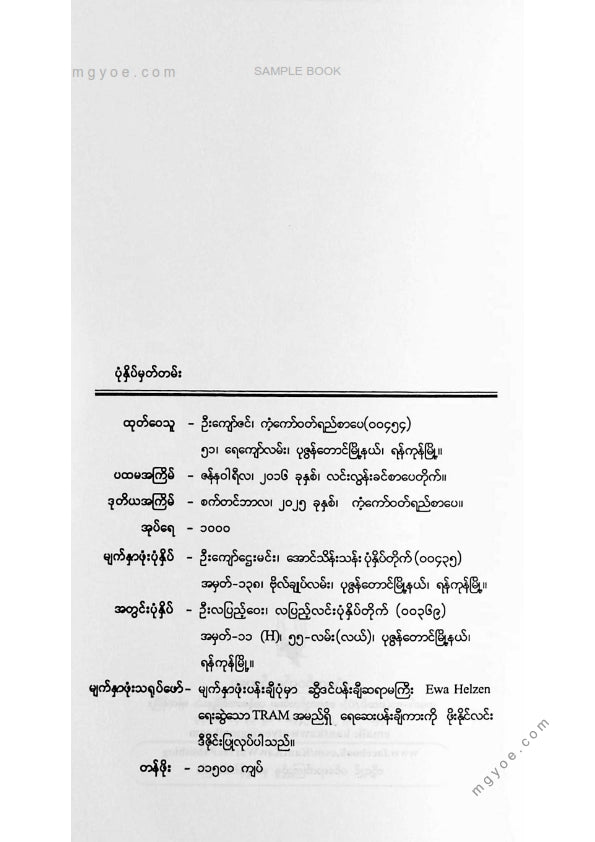 mgyoe.com SAMPLE BOOK
ပုံနှိပ်မှတ်တမ်း
ထုတ်ဝေသူ - ဦးကျော်ဇင်၊ ကံ့ကော်ဝတ်ရည်စာပေ(၀၀၄၅၄)
၅၁၊ ရေကျော်လမ်း၊ ပုဇွန်တောင်မြို့နယ်၊ ရန်ကုန်မြို့။
ပထမအကြိမ် - ဇန်နဝါရီလ၊ ၂၀၁၆ ခုနှစ်၊ လင်းလွန်းခင်စာပေတိုက်။
ဒုတိယအကြိမ် - စက်တင်ဘာလ၊ ၂၀၂၅ ခုနှစ်၊ ကံ့ကော်ဝတ်ရည်စာပေ။
အုပ်ရေ - ၁၀၀၀
မျက်နှာဖုံးပုံနှိပ် - ဦးကျော်ဌေးမင်း၊ အောင်သိန်းသန်းပုံနှိပ်တိုက်(၀၀၄၃၅)
အမှတ်-၁၃၈၊ ဗိုလ်ချုပ်လမ်း၊ ပုဇွန်တောင်မြို့နယ်၊ ရန်ကုန်မြို့။
အတွင်းပုံနှိပ် - ဦးလပြည့်ဝေး၊ လပြည့်လင်းပုံနှိပ်တိုက် (၀၀၃၆၉)
အမှတ်-၁၁ (H)၊ ၅၅-လမ်း(လယ်)၊ ပုဇွန်တောင်မြို့နယ်၊
ရန်ကုန်မြို့။
မျက်နှာဖုံးသရုပ်ဖော်- မျက်နှာဖုံးပန်းချီပုံမှာ ဆွီဒင်ပန်းချီဆရာမကြီး Ewa Helzen
ရေးဆွဲသော TRAM အမည်ရှိ ရေဆေးပန်းချီကားကို ဖိုးနိုင်လင်း
ဒီဇိုင်းပြုလုပ်ပါသည်။
တန်ဖိုး - ၁၁၅၀၀ ကျပ်
mgyoe.com